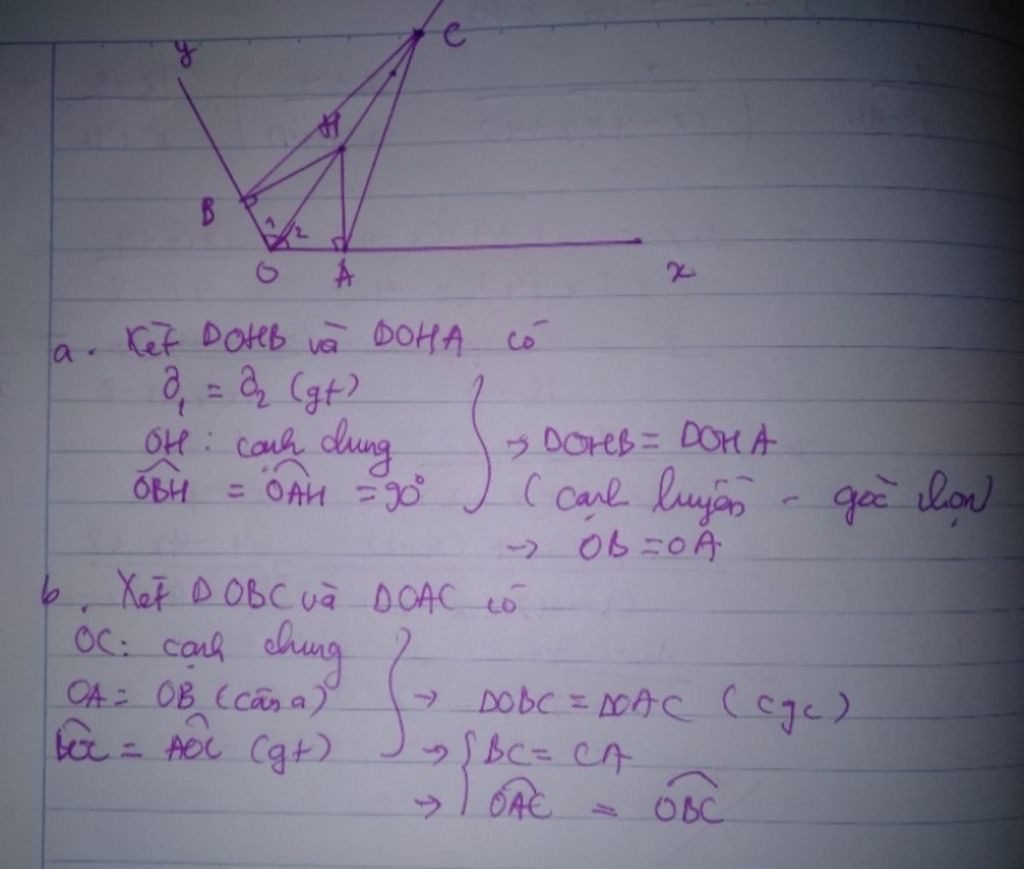 y
C
H
B
1 2
O A x
a. Xét ΔOHB và ΔOHA có
Ô₁ = Ô₂ (gt)
OH: cạnh chung
OBH = OAH = 90° → ΔOHB = ΔOHA
(cạnh huyền - góc nhọn)
→ OB = OA
b. Xét ΔOBC và ΔOAC có
OC: cạnh chung
OA = OB (câu a) → ΔOBC = ΔOAC (cgc)
BOC = AOC (gt) → BC = CA
→ OAC = OBC